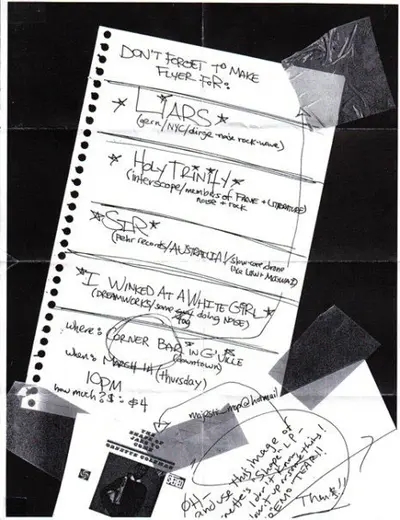 DON'T FORGET TO MAKE
FLYER FOR:
* LIARS *
(gern/NYC/dirge-noise rock-wave)
* HOLY TRINITY *
(interscope/members of FAUNE + LITERATURE)
noise + rock
* SIR *
(petir records/AUSTRALIA/slow-core drone
like LOW +
* I WINKED AT A WHITE GIRL *
(DREAMWORKS/some doing NOISE)
where: CORNER BAR IN G'VILLE
(downtown)
when: MARCH 14 (thursday)
10PM
how much?$: $4
@hotmail
THE
SHAPE OF
JAZZ TO
COME
ORNETTE COLEMAN
OH-
and use this image of
ornette's shape up-
I don't know
bust up or something!
DEMO TEAR!!
Thanx!!